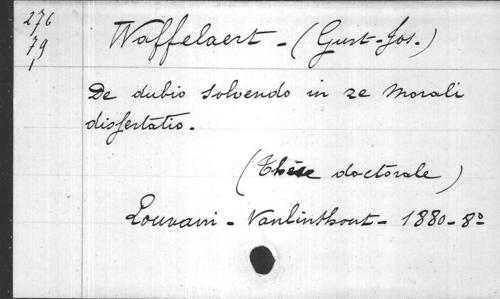 276
79
1
Waffelaert - (Gust-Jos.)
De dubio solvendo in re morali
dissertatio.
(Thèse doctorale)
Louvain - Vanlinthout - 1880 - 8º